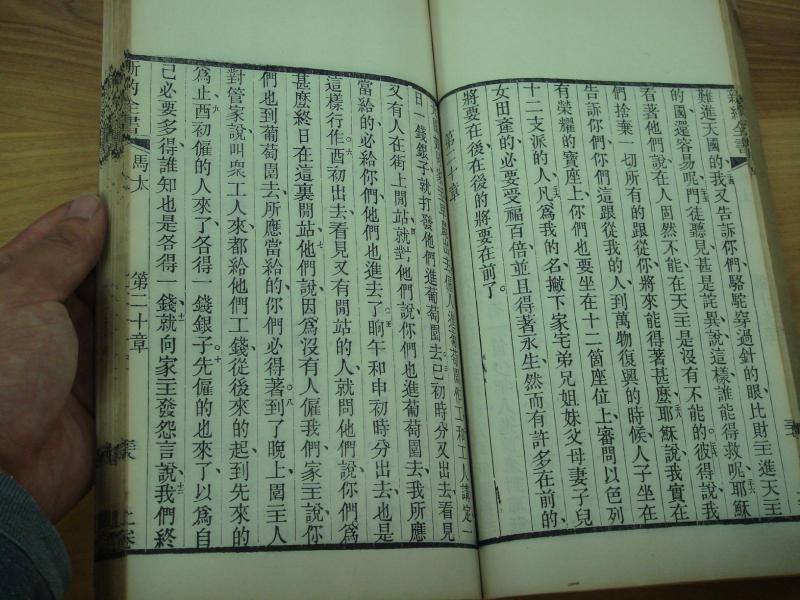 難進天國的我又告訴你們駱駝穿過鍼的眼比財主進天主
的國還容易呢門徒聽見甚是詫異說這樣誰能得救呢耶穌
看著他們說在人固然不能在天主是沒有不能的彼得說我
們捨棄一切所有的跟從你將來能得著甚麼耶穌說我實在
告訴你們你們這跟從我的人到萬物復興的時候人子坐在
有榮耀的寶座上你們也要坐在十二箇座位上審問以色列
十二支派的人凡為我的名撇下家宅弟兄姐妹父母妻子兒
女田產的必要受福百倍並且得著永生然而有許多在前的
將要在後在後的將要在前了
第二十章
日一錢銀子就打發他們進葡萄園去巳初時分又出去看見
又有人在街上閒站就對他們說你們也進葡萄園去我所應
當給的必給你們他們也進去了晌午和申初時分出去也是
這樣行作酉初出去看見又有閒站的人就問他們說你們為
甚麼終日在這裏閒站他們說因為沒有人僱我們家主說你
們也到葡萄園去所應當給的你們必得著到了晚上園主人
對管家說叫衆工人來都給他們工錢從後來的起到先來的
為止酉初僱的人來了各得一錢銀子先僱的也來了以為自
己必要多得誰知也是各得一錢就向家主發怨言說我們終
新約全書
馬太
第二十章